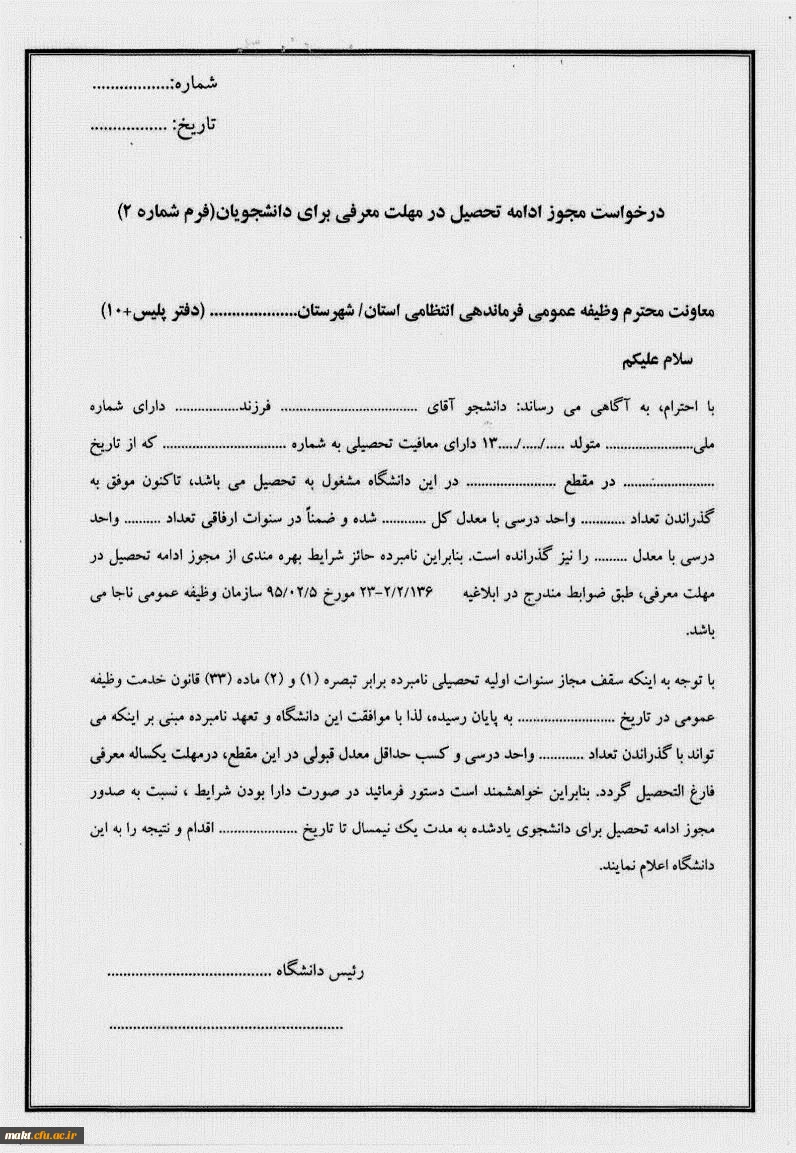 شماره:.................
تاریخ: .................
درخواست مجوز ادامه تحصیل در مهلت معرفی برای دانشجویان(فرم شماره ۲)
معاونت محترم وظیفه عمومی فرماندهی انتظامی استان/ شهرستان.................... (دفتر پلیس+۱۰)
سلام علیکم
با احترام، به آگاهی می رساند: دانشجو آقای .................................... فرزند................. دارای شماره
ملی....................... متولد ...../...../....۱۳ دارای معافیت تحصیلی به شماره ................................ که از تاریخ
........................ در مقطع ........................ در این دانشگاه مشغول به تحصیل می باشد، تاکنون موفق به
گذراندن تعداد ............ واحد درسی با معدل کل ............ شده و ضمناً در سنوات ارفاقی تعداد .......... واحد
درسی با معدل ......... را نیز گذرانده است. بنابراین نامبرده حائز شرایط بهره مندی از مجوز ادامه تحصیل در
مهلت معرفی، طبق ضوابط مندرج در ابلاغیه ۲/۲/۱۳۶-۲۳ مورخ ۹۵/۰۲/۵ سازمان وظیفه عمومی ناجا می
باشد.
با توجه به اینکه سقف مجاز سنوات اولیه تحصیلی نامبرده برابر تبصره (۱) و (۲) ماده (۳۳) قانون خدمت وظیفه
عمومی در تاریخ .......................... به پایان رسیده، لذا با موافقت این دانشگاه و تعهد نامبرده مبنی بر اینکه می
تواند با گذراندن تعداد ............ واحد درسی و کسب حداقل معدل قبولی در این مقطع، درمهلت یکساله معرفی
فارغ التحصیل گردد. بنابراین خواهشمند است دستور فرمائید در صورت دارا بودن شرایط ، نسبت به صدور
مجوز ادامه تحصیل برای دانشجوی یادشده به مدت یک نیمسال تا تاریخ ..................... اقدام و نتیجه را به این
دانشگاه اعلام نمایند.
رئیس دانشگاه ......................................
......................................................
makt.cfu.ac.ir